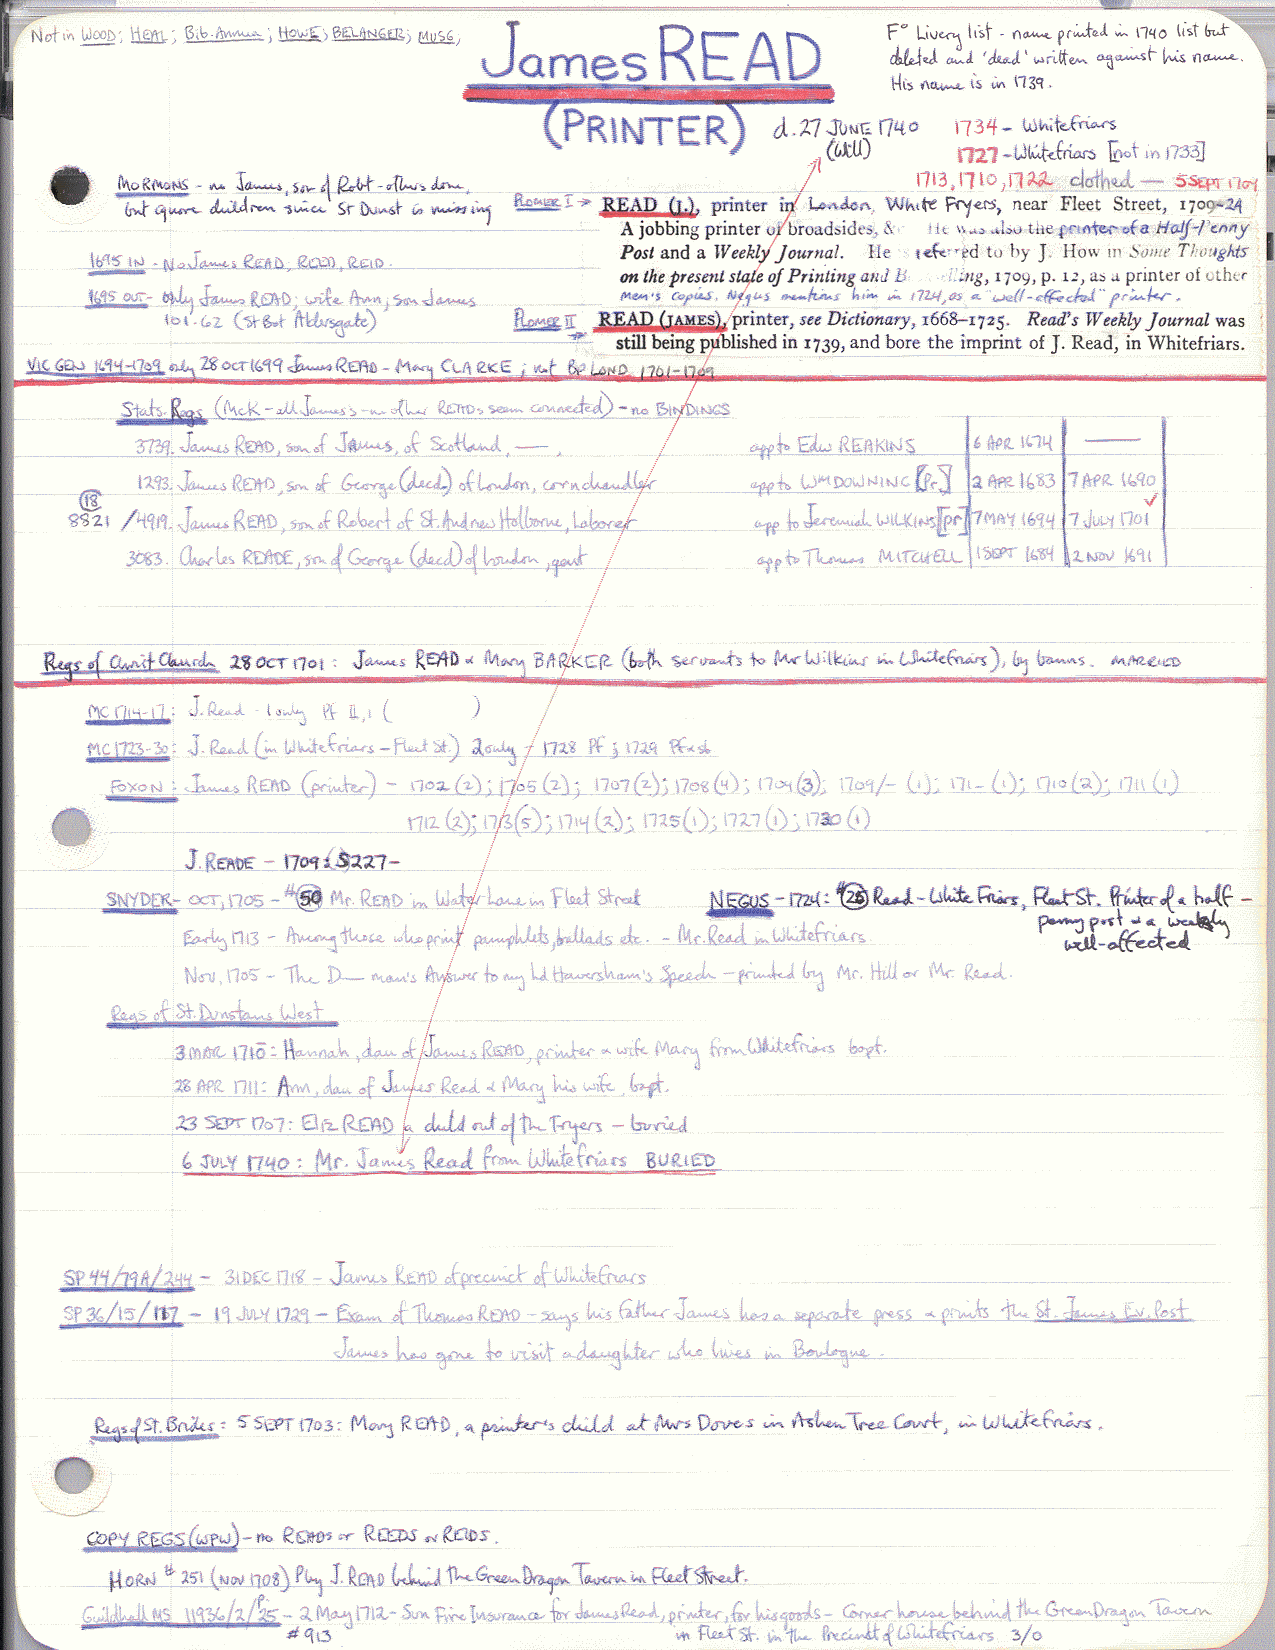 Not in WOOD; HEAL; Bib. Annua; HOWE; BELANGER; MUSG,
James READ
(PRINTER)
F° Livery list - name printed in 1740 list but
deleted and 'dead' written against his name.
His name is in 1739.
d. 27 JUNE 1740
(Will)
1734 - Whitefriars
1727 - Whitefriars [not in 1733]
1713, 1710, 1722 clothed — 5 SEPT 1709
MORMONS - no James, son of Robt - others done,
but quore children since St Dunst is missing
1695 IN - No James READ, REED, REID.
1695 OUT - only James READ; wife Ann; son James
101-62 (St Bot Aldersgate)
PLOMER I → READ (J.), printer in London, White Fryers, near Fleet Street, 1709-24
A jobbing printer of broadsides, & He was also the printer of a Half-Penny
Post and a Weekly Journal. He is refered to by J. How in Some Thoughts
on the present state of Printing and B elling, 1709, p. 12, as a printer of other
men's copies. Negus mentions him in 1724, as a "well-affected" printer.
PLOMER II → READ (JAMES), printer, see Dictionary, 1668–1725. Read's Weekly Journal was
still being published in 1739, and bore the imprint of J. Read, in Whitefriars.
VIC GEN 1694-1709 only 28 OCT 1699 James READ - Mary CLARKE; not Bp LOND 1701-1709
Stats. Regs (McK - all James's - no other seem connected) - no BINDINGS
3739. James READ, son of James, of Scotland, —, app to Edw REAKINS 6 APR 1674 —
1293. James READ, son of George (decd) of London, cornchandler app to Wm DOWNING [Pr.] 2 APR 1683 7 APR 1690
(18)
8821 / 4919. James READ, son of Robert of St. Andrew Holborne, Laborer app to Jeremiah WILKINS [pr] 7 MAY 1694 7 JULY 1701 ✓
3083. Charles READE, son of George (decd) of London, gent app to Thomas MITCHELL 1 SEPT 1684 2 NOV 1691
Regs of Christ Church 28 OCT 1701: James READ & Mary BARKER (both servants to Mr Wilkins in Whitefriars), by banns. MARRIED
MC 1714-17: J. Read - 1 only Pf II, 1 ( )
MC 1723-30: J. Read (in Whitefriars - Fleet St.) 2 only - 1728 Pf; 1729 Pf x sb
FOXON: James READ (printer) - 1702 (2); 1705 (2); 1707 (2); 1708 (4); 1709 (3); 1709/- (1); 171- (1); 1710 (2); 1711 (1)
1712 (2); 1713 (5); 1714 (2); 1725 (1); 1727 (1); 1730 (1)
J. READE - 1709: S227-
SNYDER - OCT, 1705 - #50 Mr. READ in Water Lane in Fleet Street
NEGUS - 1724: #26 Read - White Friars, Fleet St. Printer of a half-
penny post & a weekly
well-affected
Early 1713 - Among those who print pamphlets, ballads etc. - Mr. Read in Whitefriars
Nov, 1705 - The D— man's Answer to my Ld Haversham's Speech - printed by Mr. Hill or Mr. Read.
Regs of St. Dunstans West
3 MAR 1710: Hannah, dau of James READ, printer & wife Mary from Whitefriars bapt.
28 APR 1711: Ann, dau of James Read & Mary his wife, bapt.
23 SEPT 1707: Eliz READ a child out of the Fryers - buried
6 JULY 1740: Mr. James Read from Whitefriars BURIED
SP 44/79A/244 - 31 DEC 1718 - James READ of precinct of Whitefriars
SP 36/15/117 - 19 JULY 1729 - Exam of Thomas READ - says his father James has a separate press & prints the St. James Ev. Post
James has gone to visit a daughter who lives in Boulogne.
Regs of St. Brides: 5 SEPT 1703: Mary READ, a printer's child at Mrs Doves in Ashen Tree Court, in Whitefriars.
COPY REGS (WPW) - no READS or REEDS or REIDS.
HORN #251 (NOV 1708) Pby J. READ behind the Green Dragon Tavern in Fleet Street.
Guildhall MS 11936/2/P.25 - 2 May 1712 - Sun Fire Insurance for James Read, printer, for his goods - Corner house behind the Green Dragon Tavern
#913 in Fleet St. in the Precinct of Whitefriars 3/0